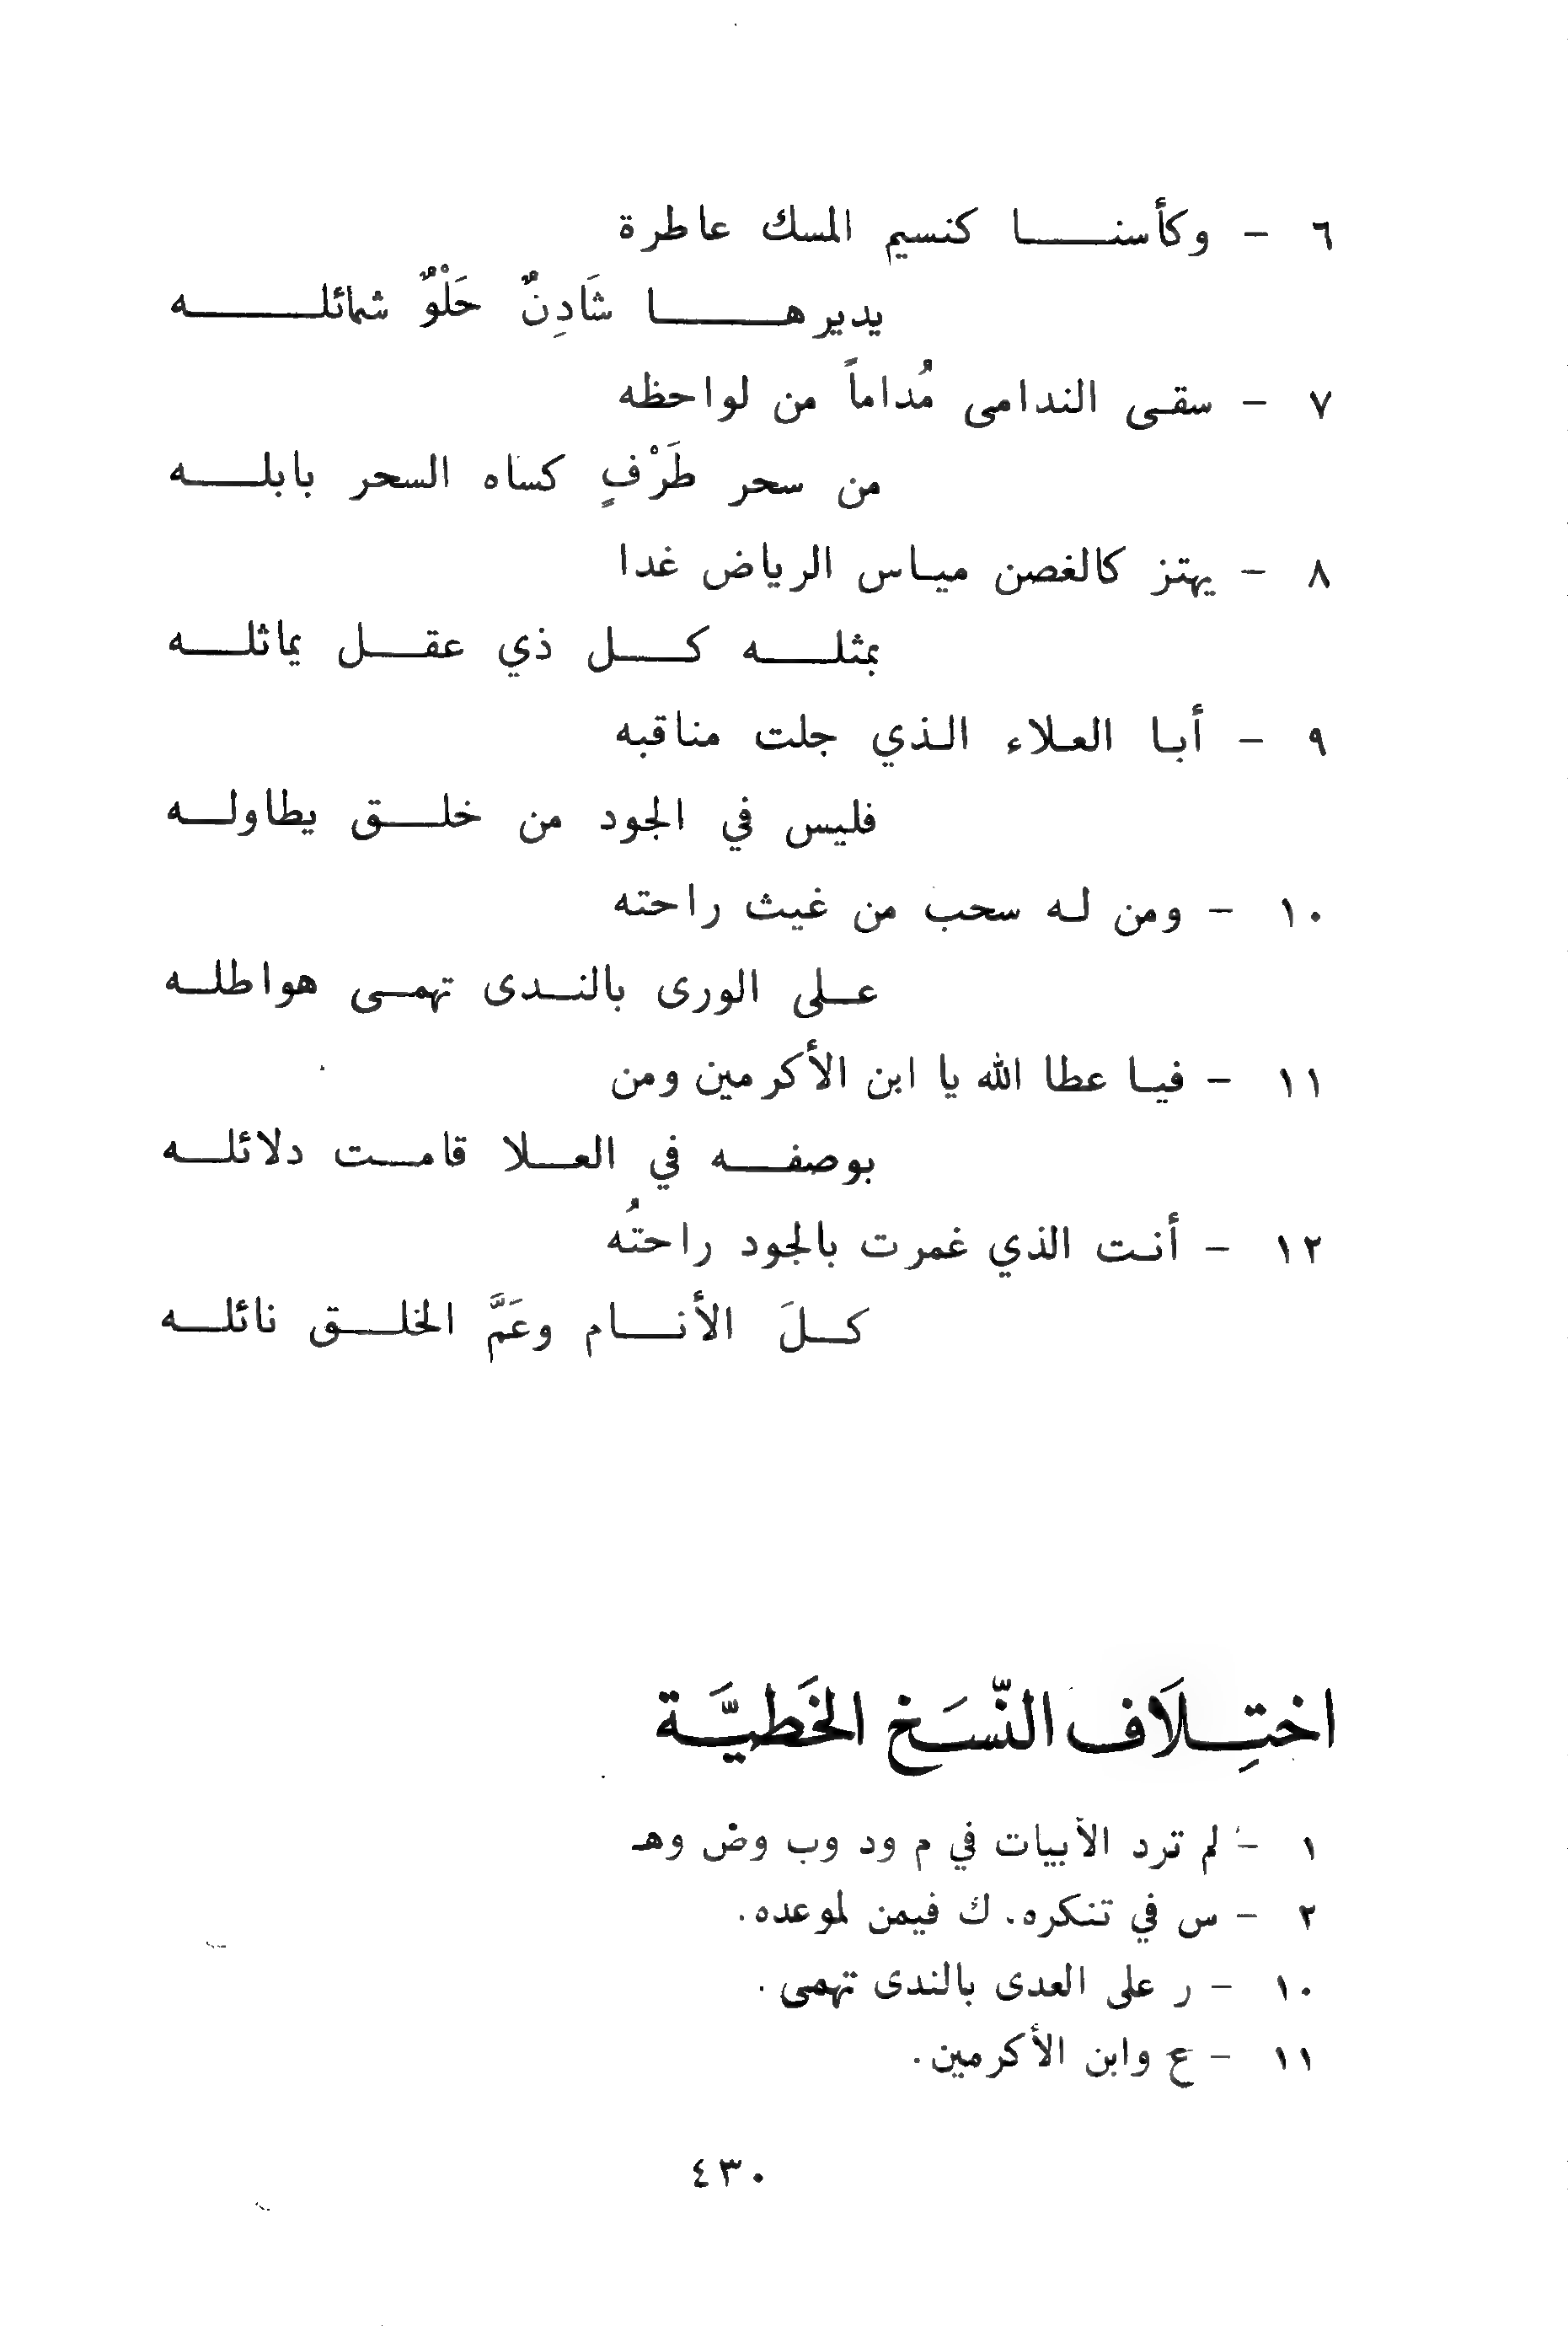 ٦ - وكأسنا كنسيم المسك عاطرة
يديرها شَادِنٌ حَلْوٌ شمائله
٧ - سقى الندامى مُداماً من لواحظه
من سحر طَرْفٍ كساه السحر بابله
٨ - يهتز كالغصن مياس الرياض غدا
بمثله كل ذي عقل يماثله
٩ - أبا العلاء الذي جلت مناقبه
فليس في الجود من خلق يطاوله
١٠ - ومن له سحب من غيث راحته
على الورى بالندى تهمى هواطله
١١ - فيا عطا الله يا ابن الأكرمين ومن
بوصفه في العلا قامت دلائله
١٢ - أنت الذي غمرت بالجود راحتُه
كلَ الأنام وعَمَّ الخلق نائله
اختِلَاف النّسَخ الخَطيَّة
١ - لم ترد الأبيات في م ود وب وض وهـ
٢ - س في تنكره. ك فيمن لموعده.
١٠ - ر على العدى بالندى تهمى.
١١ - ع وابن الأكرمين.
٤٣٠